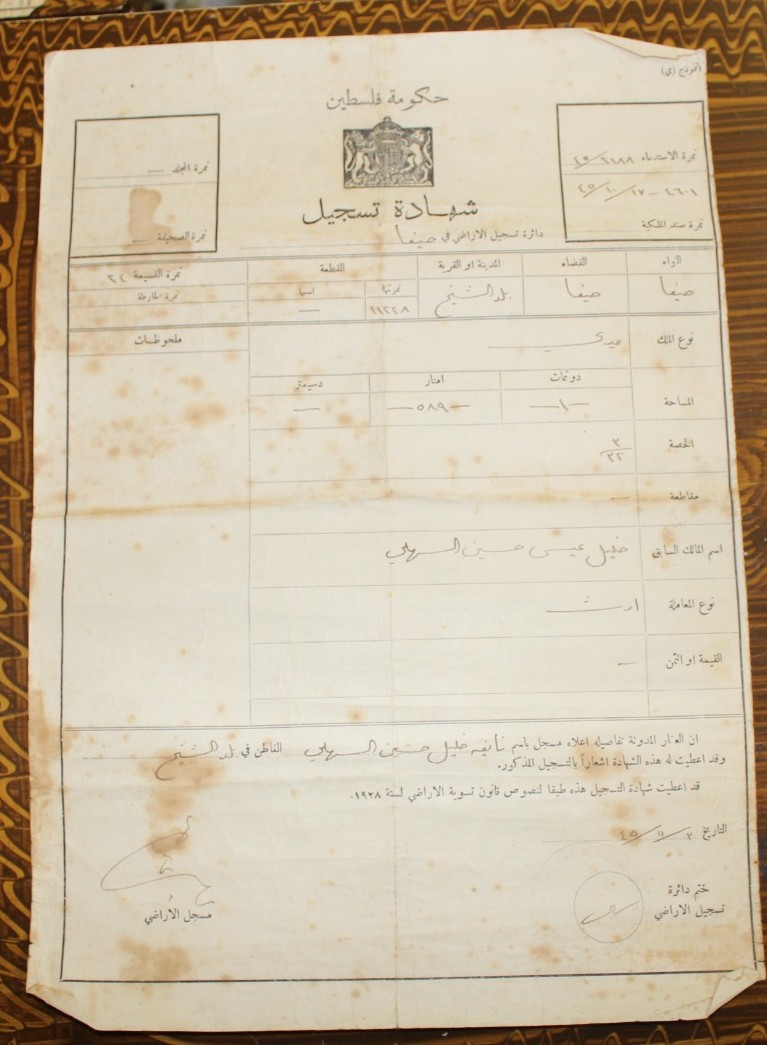 النموذج (ي)
حكومة فلسطين
نمرة الاستدعاء ٢١٨٨/٤٥
٤٦٠١ - ١٧/١٠/٤٥
نمرة سند الملكية
نمرة المجلد —
نمرة الصحيفة —
شهادة تسجيل
دائرة تسجيل الاراضي في حيفا
اللواء القضاء المدينة او القرية القطعة نمرة القسيمة ٢٤
حيفا حيفا بلد الشيخ نمرتها ١١٢٢٨ اسمها — نمرة الخارطة
نوع الملك ميري ملحوظات
دونمات امتار دسيمتر
المساحة —١— —٥٨٩— —
الحصة ٣/٣٢
مقاطعة —
اسم المالك السابق خليل عيسى حسين السهلي
نوع المعاملة ارث
القيمة او الثمن —
ان العقار المدونة تفاصيله اعلاه مسجل باسم خليل حسين السهلي القاطن في بلد الشيخ
وقد اعطيت له هذه الشهادة اشعاراً بالتسجيل المذكور.
قد اعطيت شهادة التسجيل هذه طبقا لنصوص قانون تسوية الاراضي لسنة ١٩٢٨.
التاريخ ٣/١١/٤٥
ختم دائرة
تسجيل الاراضي
مسجل الاراضي